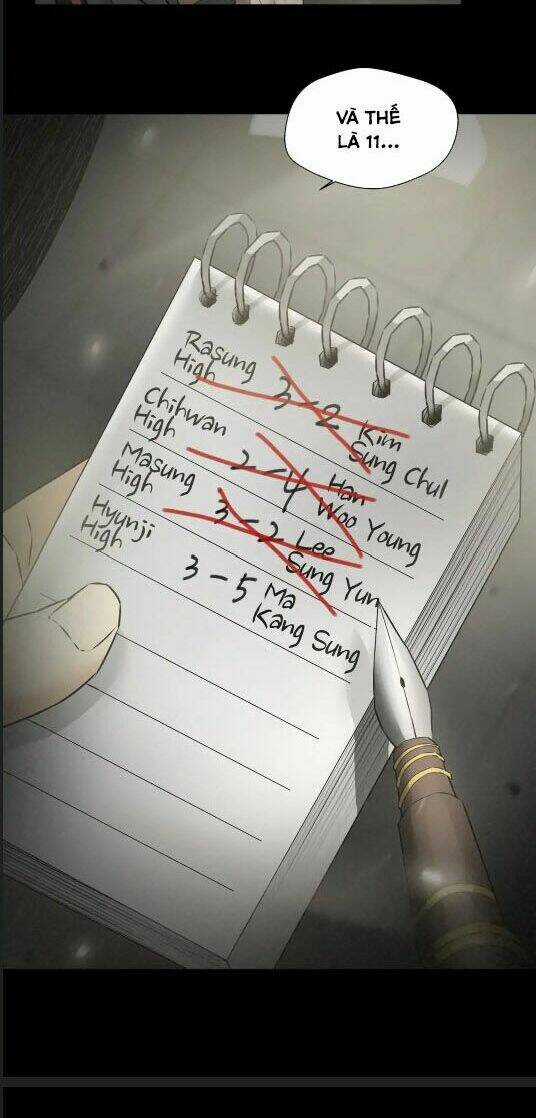 VÀ THẾ
LÀ 11...
Rasung
High
3-2
Kim
Sung Chul
Chihwan
High
2-4
Han
Woo Young
Masung
High
3-2
Lee
Sung Yun
Hyunji
High
3-5
Ma
Kang Sung